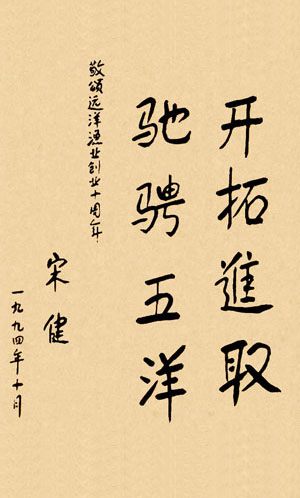 开拓進取
驰骋五洋
敬颂远洋渔业创业十周年
宋健
一九九四年十月